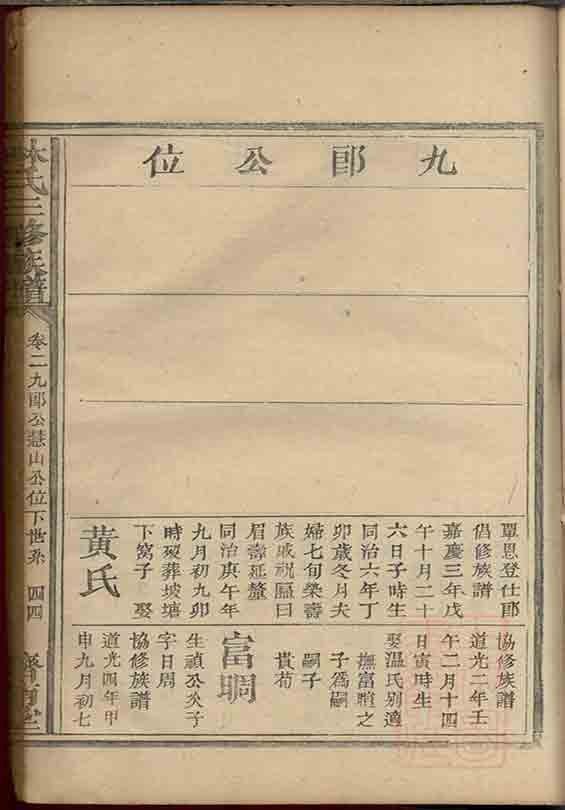 九郎公位
覃恩登仕郎
倡修族譜
嘉慶三年戊
午十月二十
六日子時生
同治六年丁
卯歲冬月夫
婦七旬榮壽
族戚祝匾曰
眉壽延釐
同治庚午年
九月初九卯
時歿葬坡塘
下窩子 娶
黃氏
協修族譜
道光二年壬
午二月十四
日寅時生
娶溫氏別適
撫富暄之
子爲嗣
嗣子
貴荀
富瞷
生禎公炎子
字日周
協修族譜
道光四年甲
申九月初七
林氏三修族譜
卷二九郎公慧山公位下世系 四四
齊